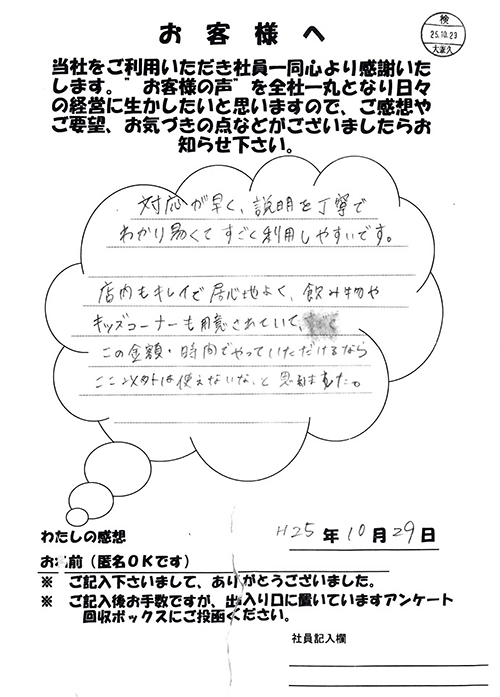 お客様へ
検
25.10.29
大喜久
当社をご利用いただき社員一同心より感謝いた
します。”お客様の声”を全社一丸となり日々
の経営に生かしたいと思いますので、ご感想や
ご要望、お気づきの点などがございましたらお
知らせ下さい。
対応が早く、説明も丁寧で
わかり易くてすごく利用しやすいです。
店内もキレイで居心地よく、飲み物や
キッズコーナーも用意されていて、
この金額・時間でやっていただけるなら
ここ以外は使えないな、と思いました。
わたしの感想
H25年10月29日
お名前（匿名OKです）
※ ご記入下さいまして、ありがとうございました。
※ ご記入後お手数ですが、出入り口に置いていますアンケート
回収ボックスにご投函ください。
社員記入欄